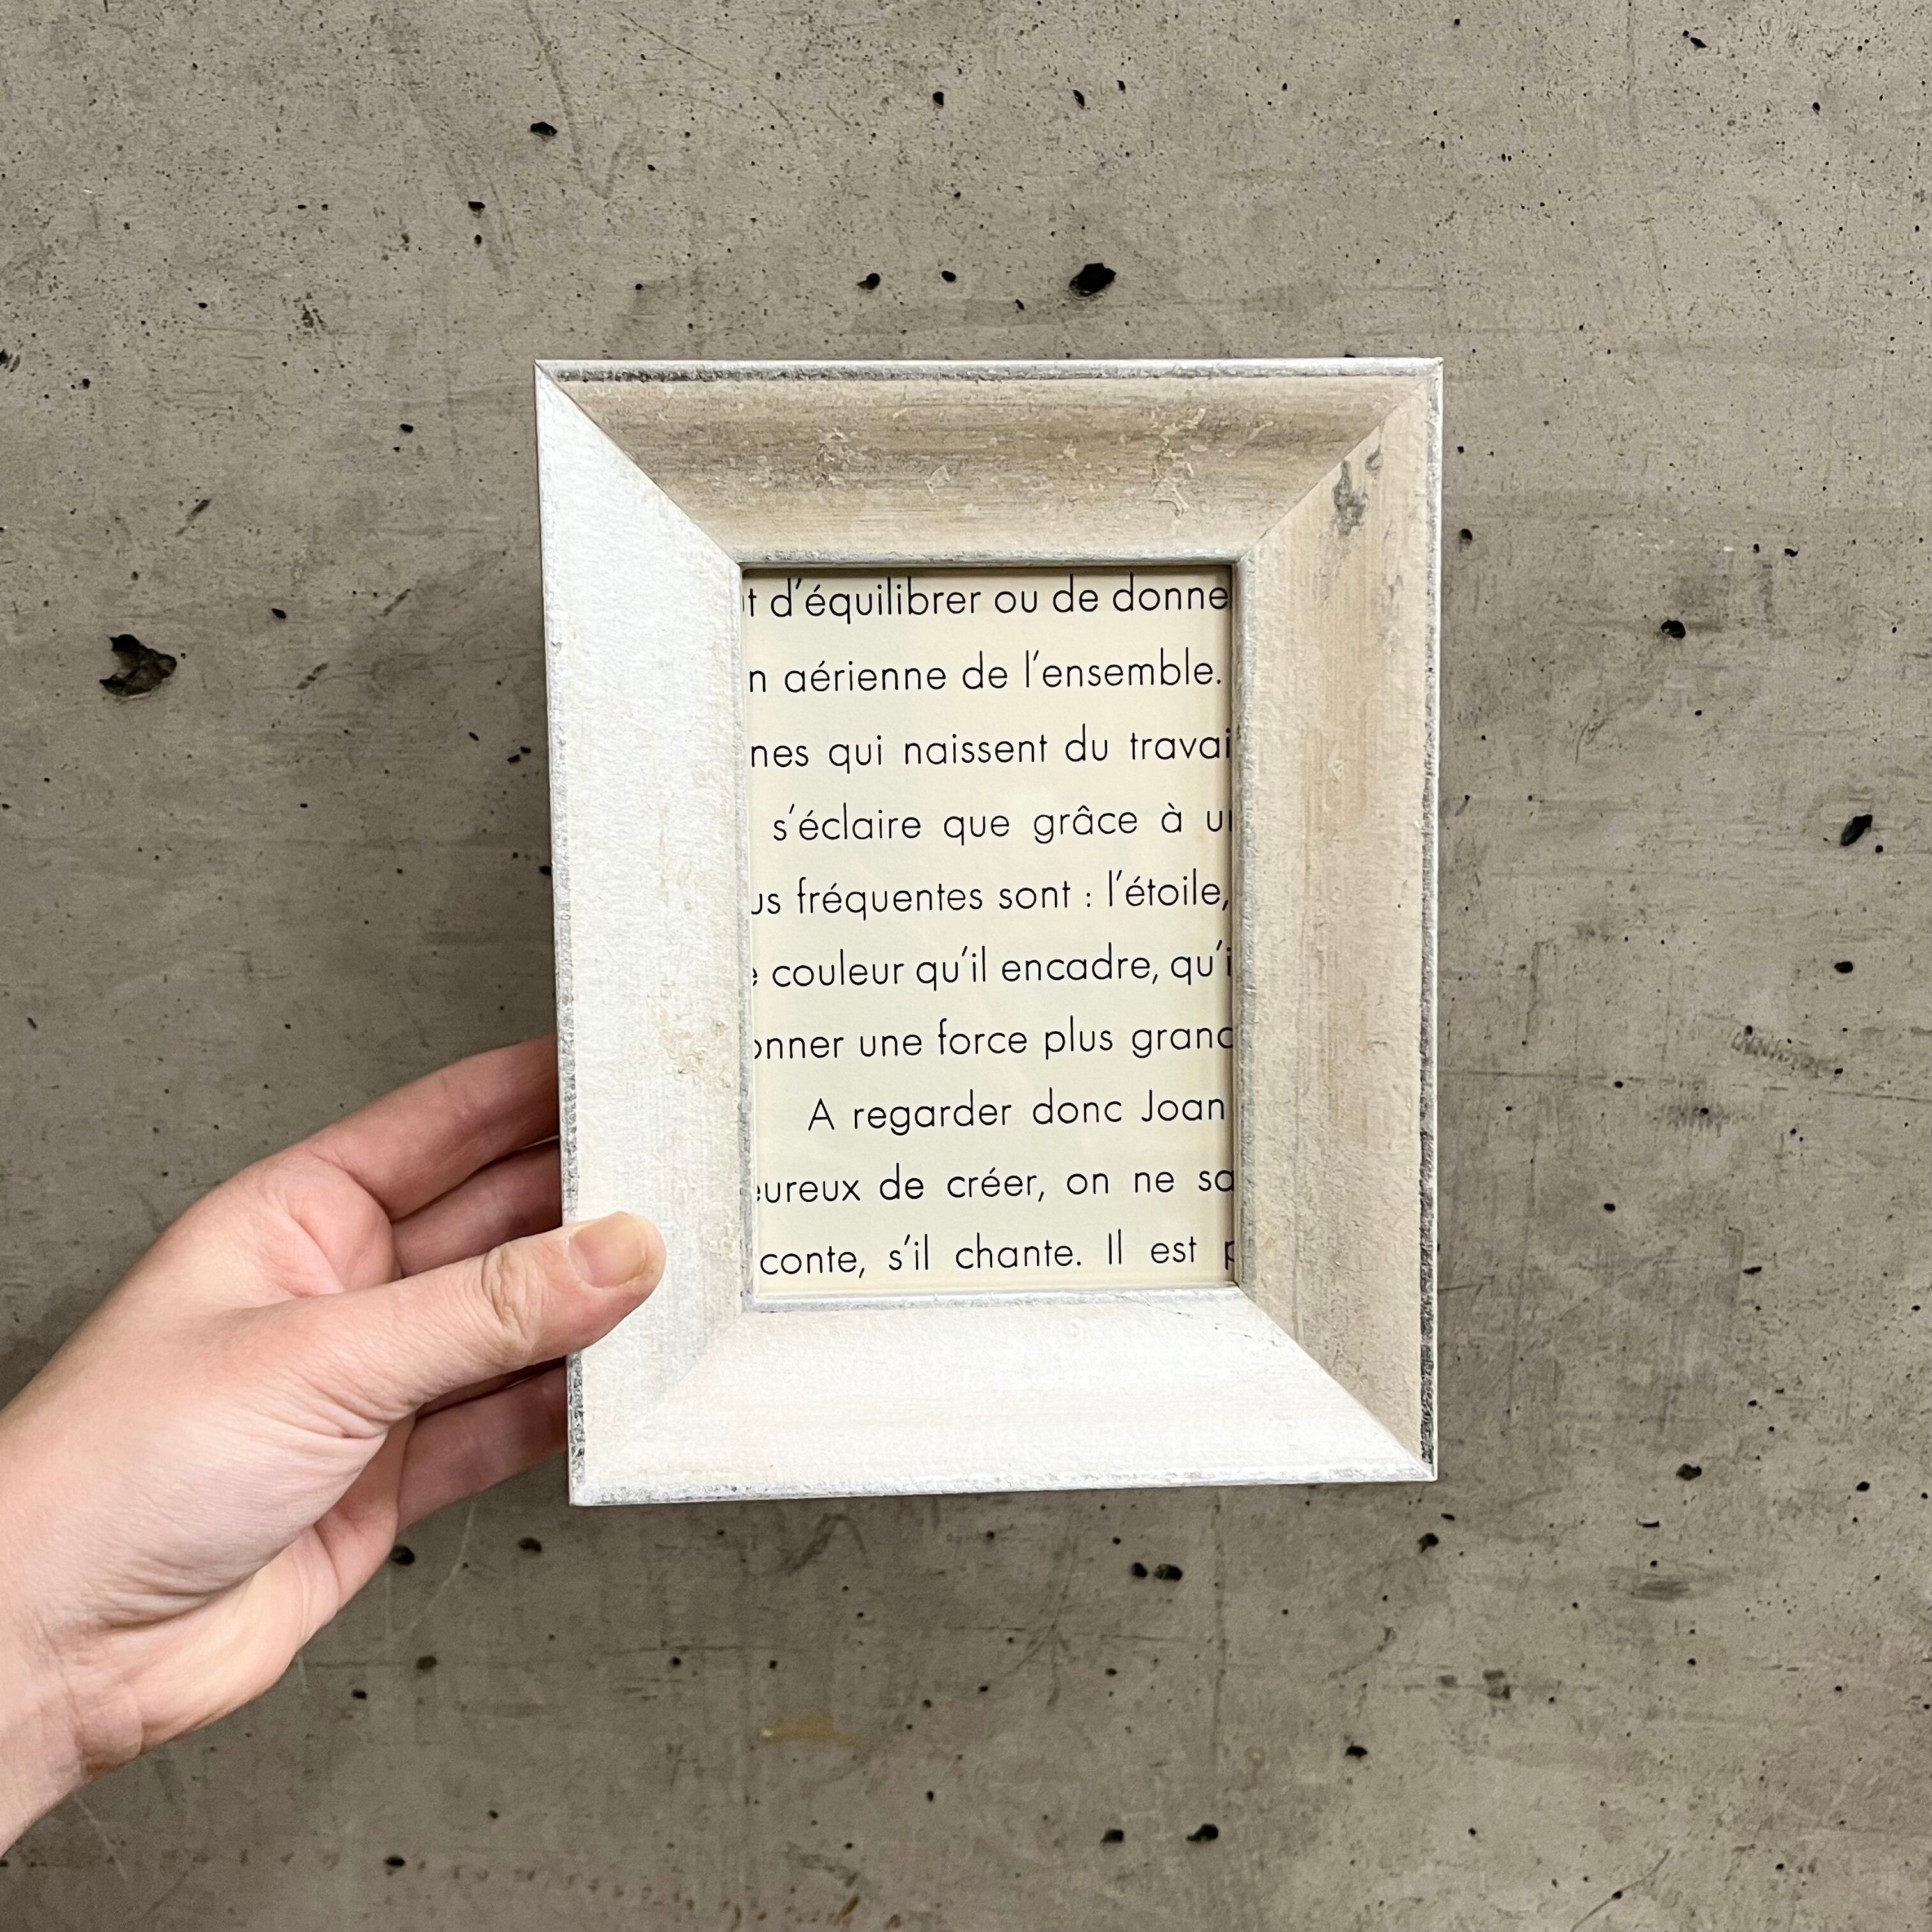 t d'équilibrer ou de donne
n aérienne de l'ensemble.
nes qui naissent du travai
s'éclaire que grâce à u
us fréquentes sont : l'étoile,
couleur qu'il encadre, qu'i
onner une force plus grand
A regarder donc Joan
eureux de créer, on ne sa
conte, s'il chante. Il est p